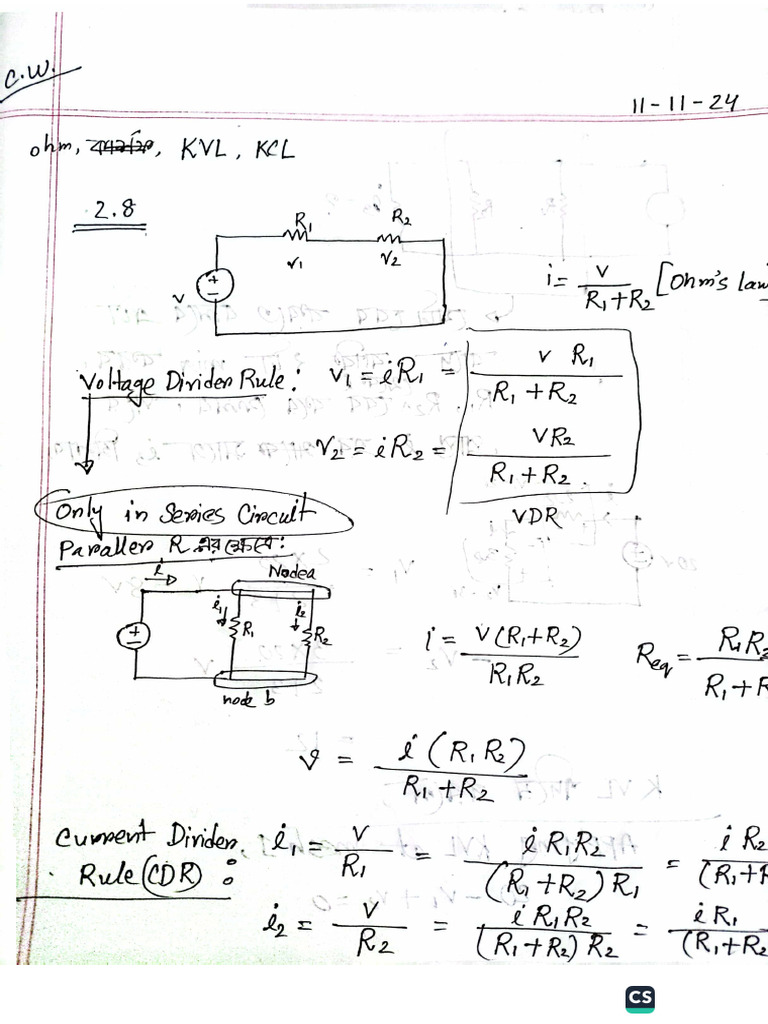 C.W.
11-11-24
ohm, KVL, KCL
2.8
R₁ R₂
v₁ v₂
v
+
-
i = v / (R₁+R₂) [Ohm's law
Voltage Divider Rule: v₁ = iR₁ = v R₁ / (R₁ + R₂)
v₂ = iR₂ = VR₂ / (R₁ + R₂)
VDR
Only in Series Circuit
Parallel R এর ক্ষেত্রে:
i
Node a
i₁ i₂
+
-
R₁ R₂
node b
i = v(R₁+R₂) / R₁R₂
Req = R₁R₂ / R₁+R
v = i (R₁R₂) / (R₁+R₂)
Current Divider Rule (CDR) :
i₁ = v / R₁ = i R₁R₂ / (R₁+R₂)R₁ = i R₂ / (R₁+R
i₂ = v / R₂ = i R₁R₂ / (R₁+R₂) R₂ = iR₁ / (R₁+R₂
CS